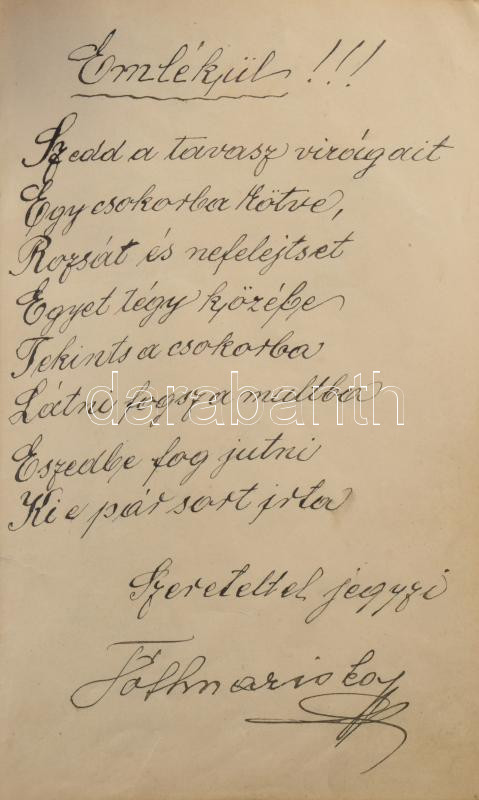 Emlékül !!!
Szedd a tavasz virágait
Egy csokorba kötve,
Rozsát és nefelejtset
Egyet tégy közébe
Tekints a csokorba
Látni fogsz a multba
darabanth
Eszedbe fog jutni
Ki e pár sort irta
Szeretettel jegyzi
Tóth mariska